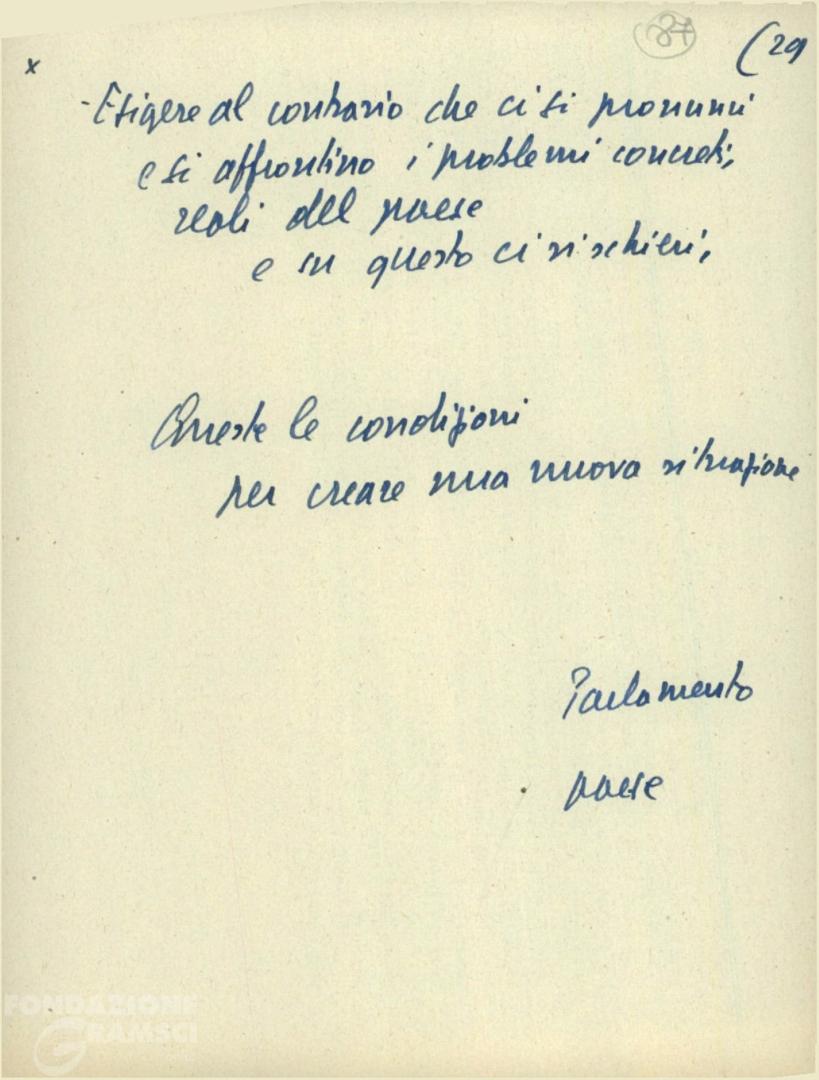 87
(29
x
- Esigere al contrario che ci si pronunci
e si affrontino i problemi concreti,
reali del paese
e su questo ci si schieri,
Queste le condizioni
per creare una nuova situazione
Parlamento
paese
FONDAZIONE
GRAMSCI